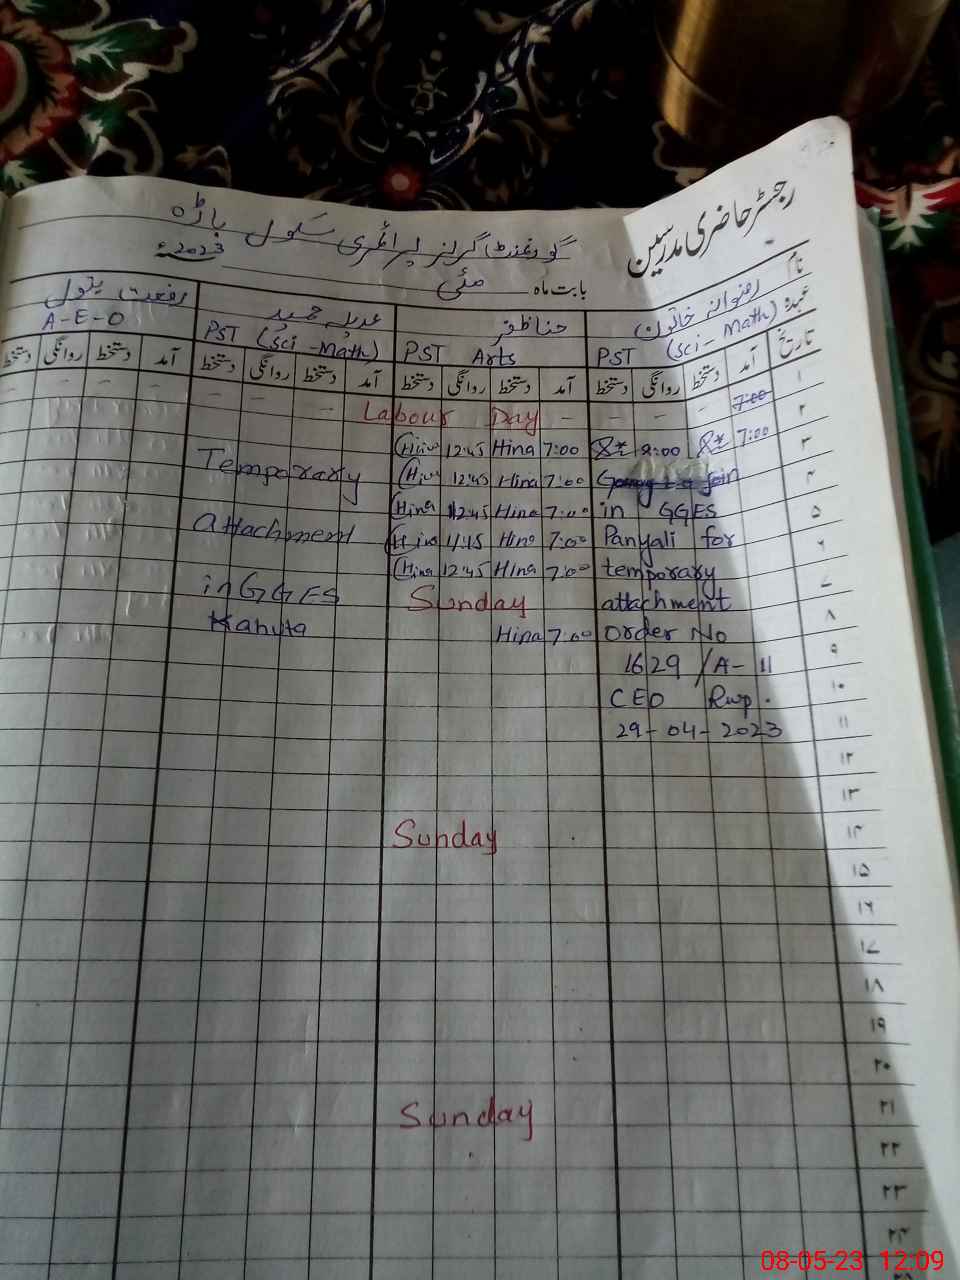 رجسٹر حاضری مدرسین
گورنمنٹ گرلز پرائمری سکول باڑہ
بابت ماہ مئی 2023ء
نام رضوانہ خاتون حنا ظفر عدیلہ حمید رفعت بتول
عہدہ PST (Sci-Math) PST Arts PST (Sci-Math) A-E-O
تاریخ آمد دستخط روانگی دستخط آمد دستخط روانگی دستخط آمد دستخط روانگی دستخط آمد دستخط روانگی دستخط
۱ 7:00 - - - - Labour Day - - - - - - -
۲ 7:00 9:00 Hina 12:45 Hina 7:00
۳ join Hina 12:45 Hina 7:00
۴ in GGES Hina 12:45 Hina 7:00
۵ Panyali for Hina 11:15 Hina 7:00
۶ temporary Hina 12:45 Hina 7:00
۷ attachment Sunday
۸ order No Hina 7:00
۹ 1629/A-11
۱۰ CEO Rwp.
۱۱ 29-04-2023
Temporary
Attachment
in GGES
Kahuta
۱۲
۱۳
۱۴ Sunday
۱۵
۱۶
۱۷
۱۸
۱۹
۲۰
۲۱ Sunday
۲۲
۲۳
۲۴
08-05-23 12:09